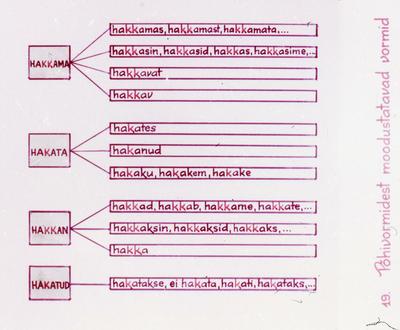 HAKKAMA
hakkamas, hakkamast, hakkamata,...
hakkasin, hakkasid, hakkas, hakkasime,...
hakkavat
hakkav
HAKATA
hakates
hakanud
hakaku, hakakem, hakake
HAKKAN
hakkad, hakkab, hakkame, hakkate,...
hakkaksin, hakkaksid, hakkaks,...
hakka
HAKATUD
hakatakse, ei hakata, hakati, hakataks,...
19. Põhivormidest moodustatavad vormid